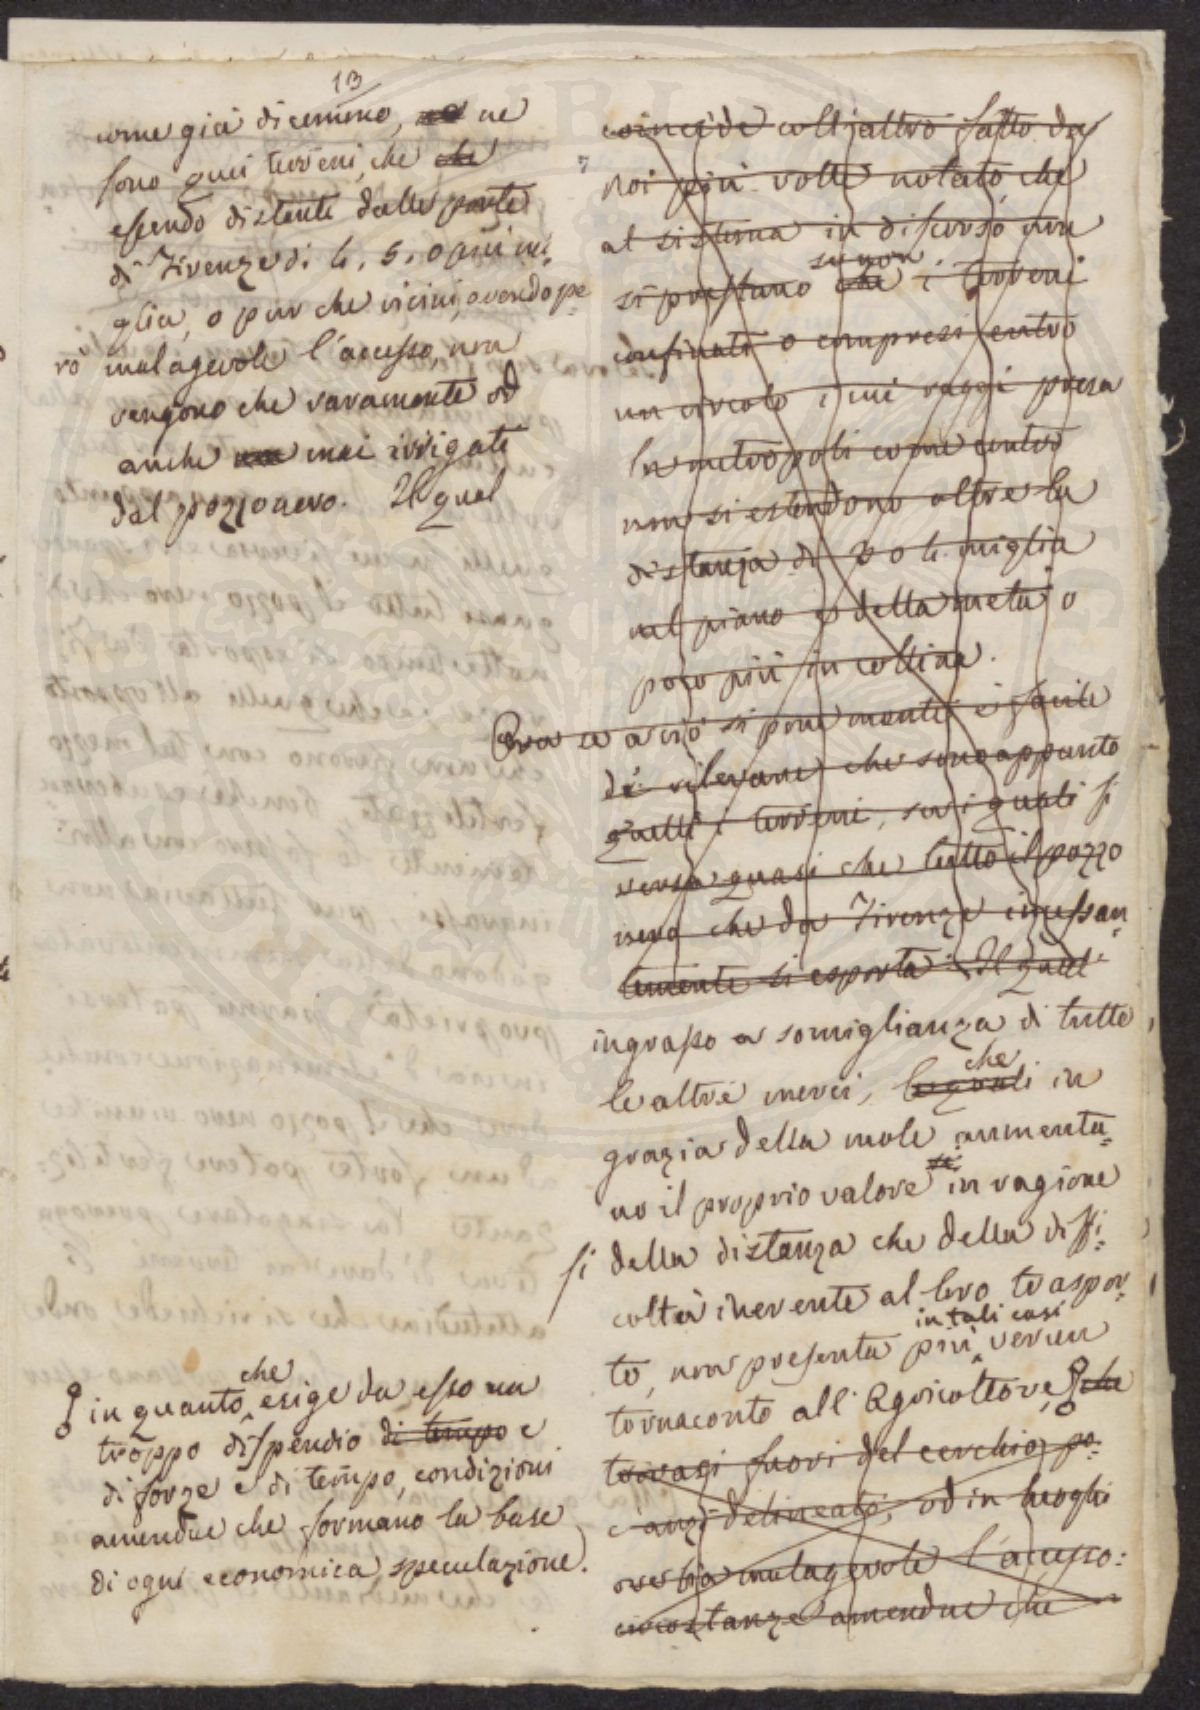 13
come già dicemmo, ne
sono quei terreni, che che
essendo distanti dalle porte
di Firenze di 4, 5, o più mi=
glia, o pur che vicini, avendo pe
rò malagevole l'accesso, non
vengono che raramente od
anche mai irrigati
dal pozzo nero. Il qual
coincide coll'altro fatto da
noi più volte notato che
al sistema in discorso non
se non
si prestano che i terreni
confinati o compresi entro
un circolo i cui raggi presa
la metropoli come centro
non si estendono oltre la
distanza di 3 o 4 miglia
nel piano e della metà o
poco più in collina.
Ora se a ciò si pone mente è facile
di rilevare che sono appunto
quelli i terreni, sui quali si
versa quasi che tutto il pozzo
nero che da Firenze incessan
temente si esporta. Il qual
ingrasso a somiglianza di tutte
che
le altre merci, le quali in
grazia della mole aumenta=
no il proprio valore in ragione
si della distanza che della diffi=
coltà inerente al loro traspor=
in tali casi
to, non presenta più verun
tornaconto all'Agricoltore, che
trovasi fuori del cerchio po=
c'anzi delineato, od in luoghi
ove sia malagevole l'accesso:
circostanze amendue che
che
in quanto esige da esso un
troppo dispendio di tempo e
di forze e di tempo, condizioni
amendue che formano la base
di ogni economica speculazione.